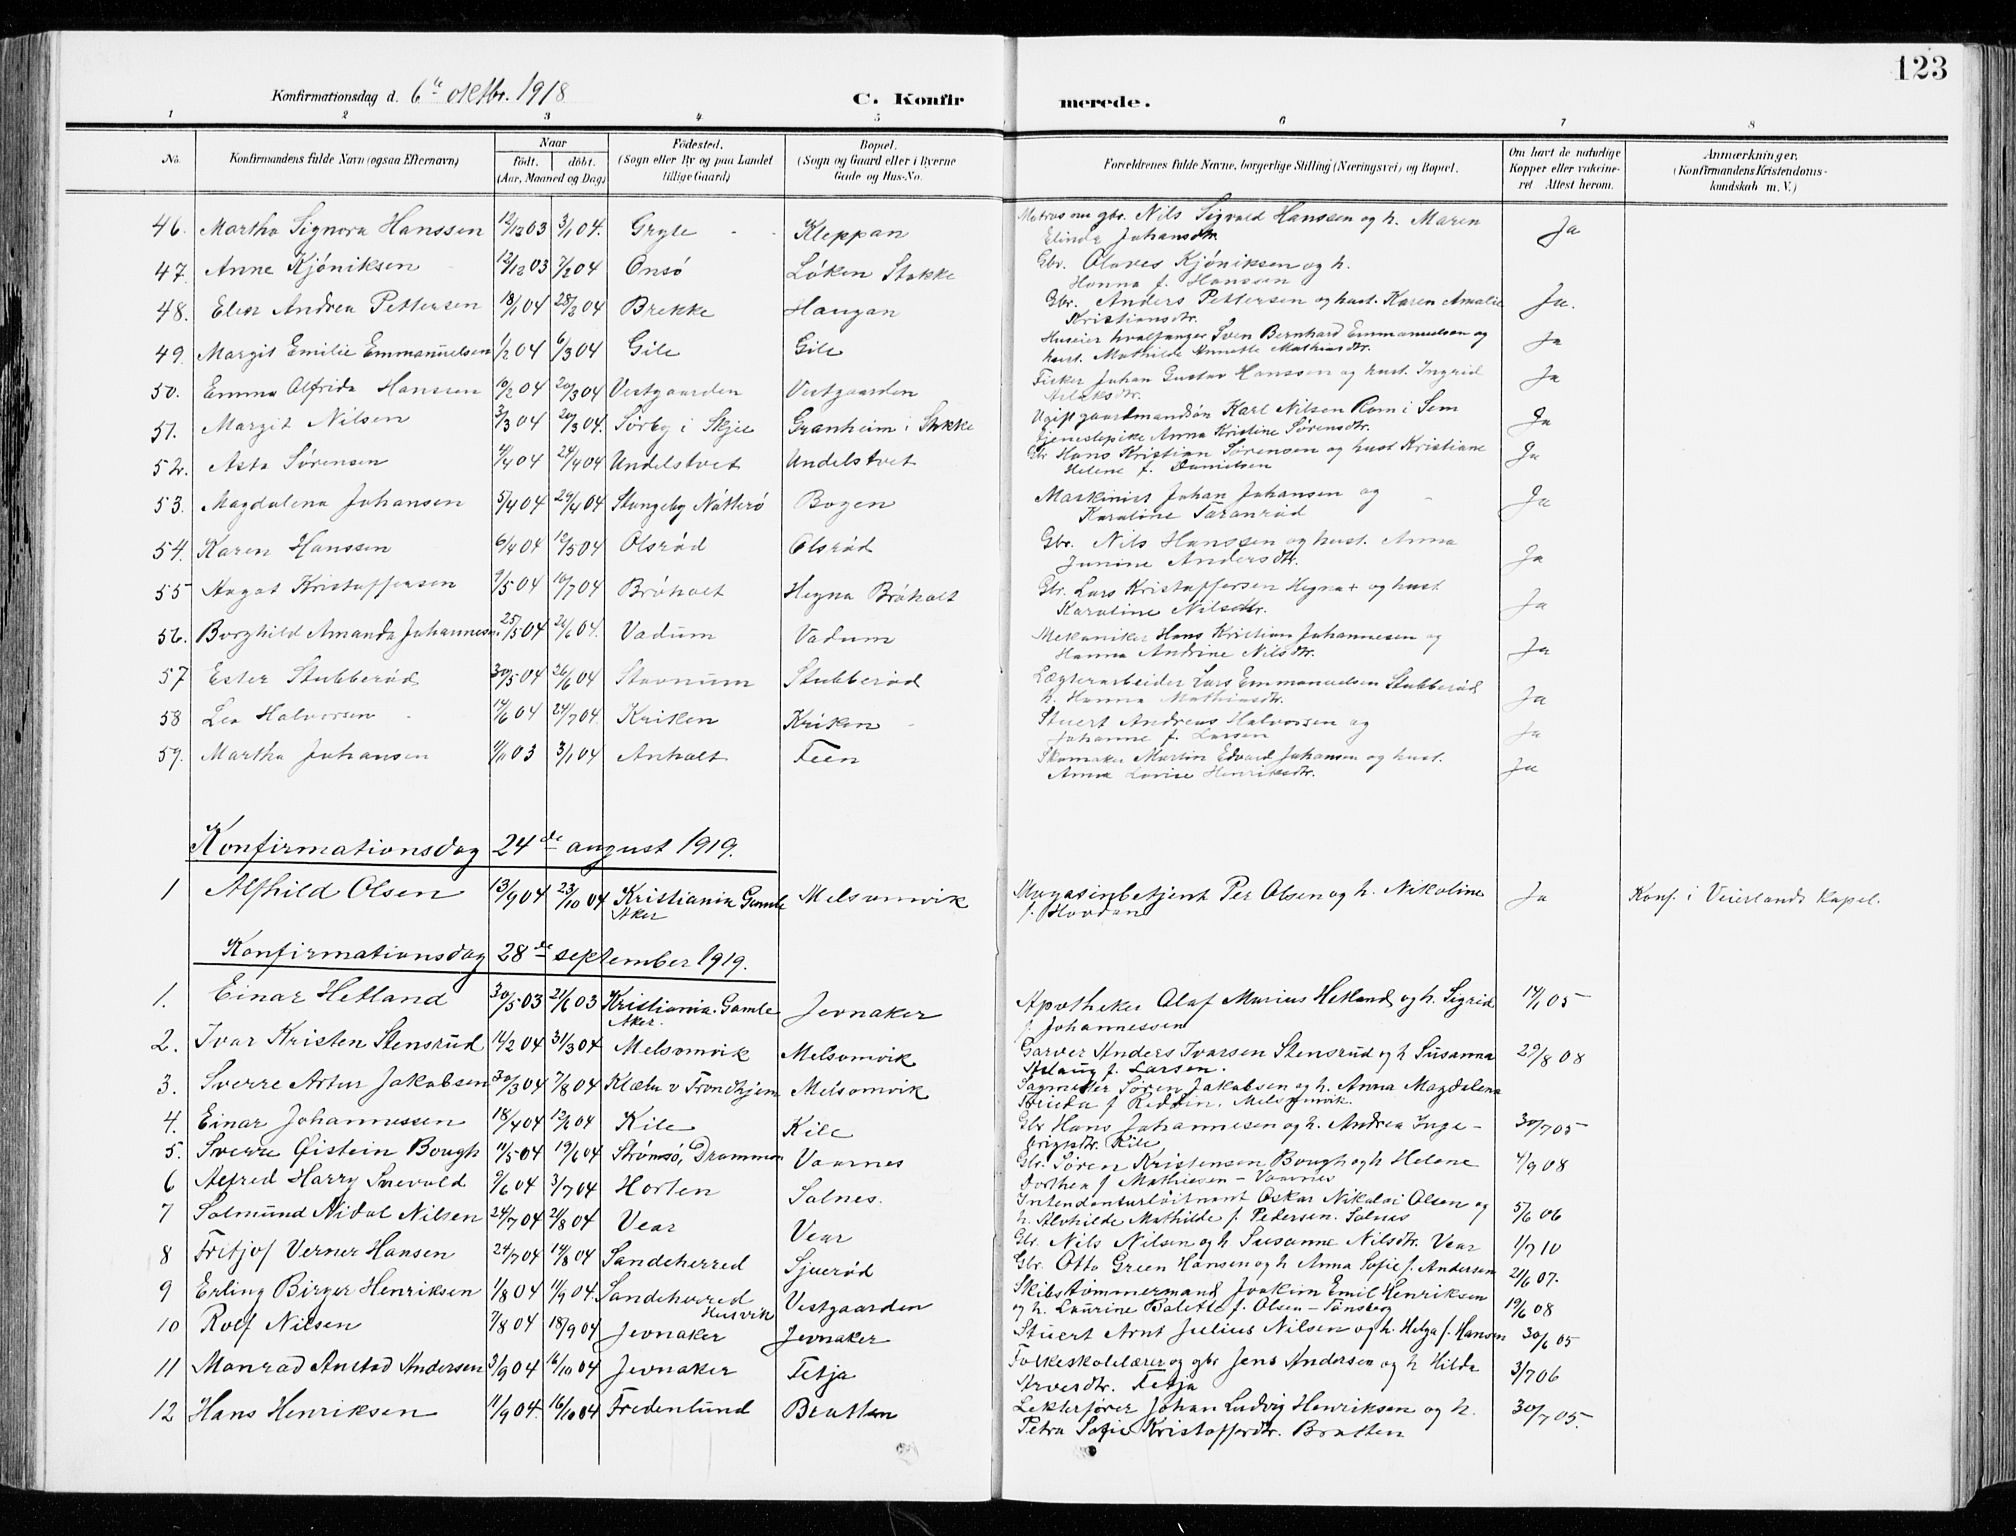 123
Konfirmationsdag d. 6te oktbr. 1918
C. Konfirmerede.
1 2 3 4 5 6 7 8
No. Konfirmandens fulde Navn (ogsaa Efternavn) Naar født. døbt. (Aar, Maaned og Dag) Fødested. (Sogn eller By og paa Landet tillige Gaard) Bopel. (Sogn og Gaard eller i Byerne Gade og Hus-No. Forældrenes fulde Navne, borgerlige Stilling (Næringsvei) og Bopel. Om havt de naturlige Kopper eller vakcineret Attest herom. Anmærkninger. (Konfirmandens Kristendomskundskab m. V.)
46. Martha Signora Hanssen 12/12 03 3/1 04. Gryte Kleppan Matros og gbr. Nils Sigvald Hanssen og h. Maren Ja
Elinde Johansdtr.
47. Anne Kjøniksen 12/12 03 7/2 04 Onsø Løken Stokke Gbr. Olaves Kjøniksen og h.
Hanna f. Hanssen
48. Elen Andrea Pettersen 18/1 04 28/2 04 Brekke Haugan Gbr. Anders Pettersen og hust. Karen Amalie Ja.
Kristiansdtr.
49. Margit Emilie Emmanuelsen 1/2 04 6/3 04 Gile Gile Huseier hvalfanger Sven Bernhard Emmanuelsen og Ja
hust. Mathilde Annette Mathiasdtr.
50. Emma Alfrida Hanssen 10/2 04 20/3 04 Vestgaarden Vestgaarden Fisker Johan Gustav Hanssen og hust. Ingrid Ja
Nilsdtr.
51. Margit Nilsen 3/3 04 20/3 04. Sørby i Skjee Granheim i Stokke Ugift gaardmandsøn Karl Nilsen Rom i Sem Ja
tjenestepike Anna Kristine Sørensdtr.
52. Asta Sørensen 4/4 04 24/4 04 Undelstvet Undelstvet Gbr Hans Kristian Sørensen og hust Kristiane Ja
Helene f. Danielsen
53. Magdalena Johansen 5/4 04 29/4 04 Stangeby Nøtterø Bogen Maskinist Johan Johansen og Ja
Karoline Taranrød
54. Karen Hanssen 6/4 04 12/5 04 Olsrød Olsrød Gbr. Nils Hanssen og hust. Anna Ja
Junine Andersdtr.
55 Aagot Kristoffersen 9/5 04 10/7 04 Brøholt Hegna Brøholt Gbr. Lars Kristoffersen Hegna + og hust Ja
Karoline Nilsdtr.
56. Borghild Amanda Johannesen 25/5 04 26/6 04. Vadum Vadum Mekaniker Hans Kristian Johannesen og Ja
Hanna Andrine Nilsdtr.
57 Ester Stubberød 30/5 04 26/6 04 Stavnum Stubberød Lægterarbeider Lars Emmanuelsen Stubberød Ja
h. Hanna Mathiasdtr.
58 Lea Halvorsen 14/6 04 24/7 04. Kriken Kriken Stuert Andreas Halvorsen og Ja
Johanne f. Larsen
59. Martha Johansen 11/11 03 3/1 04 Anholt Feen Skomaker Martin Edvard Johansen og hust. Ja
Anna Lovise Henriksdtr.
Konfirmationsdag 24de august 1919.
1 Alfhild Olsen 13/9 04 23/10 04 Kristiania Gamle Melsomvik Magasinbetjent Per Olsen og h. Nikoline Ja Konf. i Veierlands Kapel.
Aker f. Hovdan
Konfirmationsdag 28de september 1919.
1. Einar Hetland 30/5 03 21/6 03 Kristiania. Gamle Jevnaker Apotheker Olaf Marius Hetland og h. Sigrid 14/1 05
Aker. f. Johannessen
2. Ivar Kristen Stensrud 14/2 04 31/3 04 Melsomvik Melsomvik Garver Anders Ivarsen Stensrud og h Susanna 29/8 08
Aslaug f. Larsen.
3. Sverre Artur Jakobsen 30/3 04 7/8 04 Klæbu v Trondhjem Melsomvik Sagmester Søren Jakobsen og h. Anna Magdalena
Frieda f Riddin. Melsomvik.
4. Einar Johannessen 18/4 04 12/6 04 Kile Kile Gbr Hans Johannesen og h. Andrea Inge- 30/7 05
brigtsdtr. Kile
5. Sverre Øistein Bough 11/5 04 19/6 04 Strømsø, Drammen Vaarnes Gbr. Søren Kristensen Bough og h Helene 4/9 08
Dorthea f Mathiesen - Vaarnes
6 Alfred Harry Snevold 9/6 04 3/7 04 Horten Solnes. Intendanturløitnant Oskar Nikolai Olsen og 5/6 06
h. Alvhilde Mathilde f. Pedersen. Solnes
7 Salmund Nidal Nilsen 24/7 04 21/8 04 Vear Vear Gbr. Nils Nilsen og h Susanne Nilsdtr. Vear 1/7 10
8 Fritjof Verner Hansen 24/7 04 14/8 04 Sandeherred Sjuerød Gbr. Otto Green Hansen og h Anna Sofie f. Andersen 21/6 07.
9 Erling Birger Henriksen 1/8 04 11/9 04. Sandeherred Vestgaarden Skibstømmermand Joakim Emil Henriksen 19/6 08
Husvik og h. Laurine Balette f. Olsen - Tønsberg
10 Rolf Nilsen 7/8 04 18/9 04 Jevnaker Jevnaker Stuert Arnt Julius Nilsen og h. Helga f. Hansen 30/6 05
11 Monrad Anstad Andersen 3/9 04 16/10 04 Jevnaker Fetja Folkeskolelærer og gbr Jens Andersen og h Hilda 3/7 06
Arvesdtr. Fetja
12 Hans Henriksen 11/9 04. 16/10 04 Fredenlund Bratten Lekterfører Johan Ludvig Henriksen og h. 30/7 05.
Petra Sofie Kristoffersdtr. Bratten